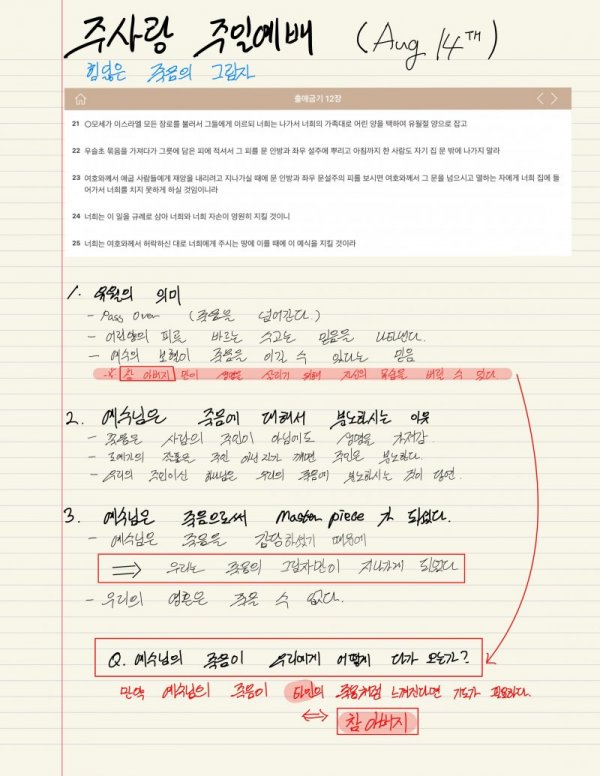 주사랑 주일예배 (Aug 14TH)
힘잃은 죽음의 그림자
출애굽기 12장
21 ○모세가 이스라엘 모든 장로를 불러서 그들에게 이르되 너희는 나가서 너희의 가족대로 어린 양을 택하여 유월절 양으로 잡고
22 우슬초 묶음을 가져다가 그릇에 담은 피에 적셔서 그 피를 문 인방과 좌우 설주에 뿌리고 아침까지 한 사람도 자기 집 문 밖에 나가지 말라
23 여호와께서 애굽 사람들에게 재앙을 내리려고 지나가실 때에 문 인방과 좌우 문설주의 피를 보시면 여호와께서 그 문을 넘으시고 멸하는 자에게 너희 집에 들
어가서 너희를 치지 못하게 하실 것임이니라
24 너희는 이 일을 규례로 삼아 너희와 너희 자손이 영원히 지킬 것이니
25 너희는 여호와께서 허락하신 대로 너희에게 주시는 땅에 이를 때에 이 예식을 지킬 것이라
1. 유월의 의미
- Pass Over (죽음을 넘어간다.)
- 어린양의 피로 바르는 수고는 믿음을 나타낸다.
- 예수의 보혈이 죽음을 이길 수 있다는 믿음
-* 참 아버지만이 생명을 살리기 위해 자신의 목숨을 버릴 수 있다.
2. 예수님은 죽음에 대해서 분노하시는 이유
- 죽음은 사람의 주인이 아님에도 생명을
- 도예가의 작품을 주인 아닌 자가 깨면 주인은 분노하다.
- 우리의 주인이신 하나님은 우리의 죽음에 분노하시는 것이 당연.
3. 예수님은 죽음으로써 Master piece가 되셨다.
- 예수님은 죽음을 감당하셨기 때문에
⇒ 우리는 죽음의 그림자만이 지나가게 되었다
- 우리의 영혼은 죽을 수 없다.
Q. 예수님의 죽음이 우리에게 어떻게 다가 오는가?
만약 예수님의 죽음이 타인의 죽음처럼 느껴진다면 기도가 필요하다.
⇔ 참 아버지